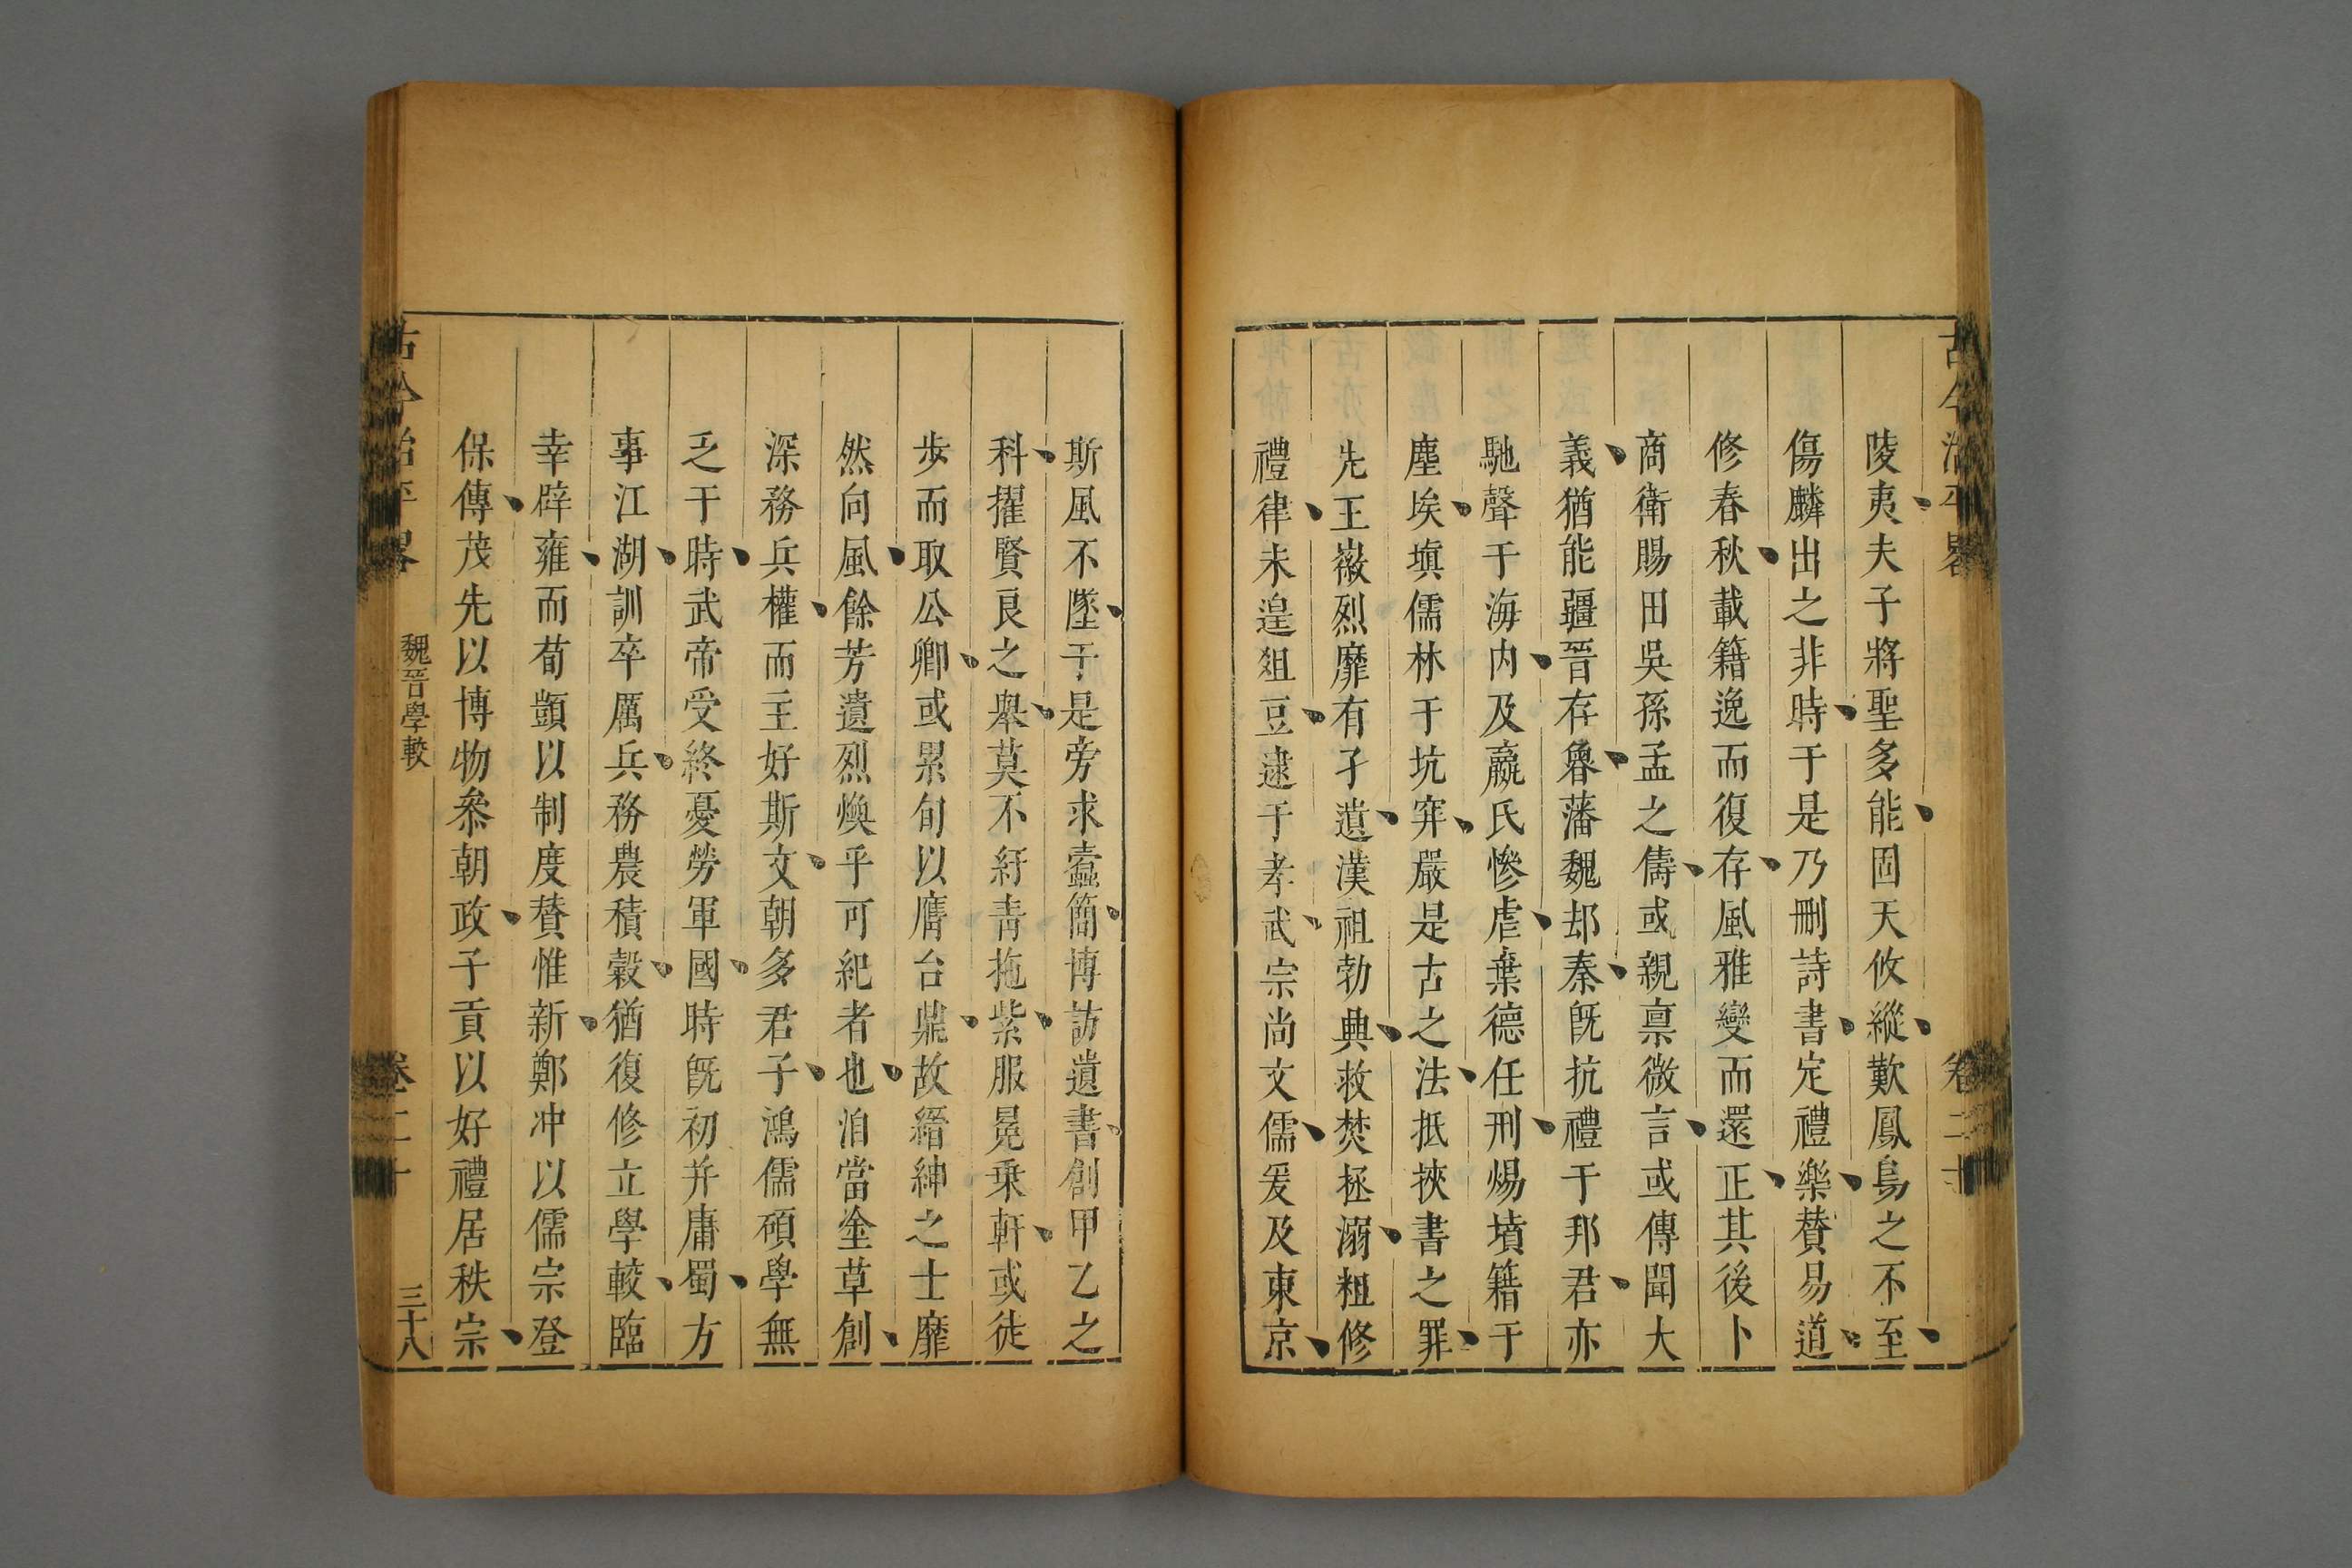 古今治平畧
卷二十
陵夷夫子將聖多能固天攸縱歎鳳鳥之不至
傷麟出之非時于是乃刪詩書定禮樂贊易道
修春秋載籍逸而復存風雅變而還正其後卜
商衛賜田吳孫孟之儔或親稟微言或傳聞大
義猶能疆晉存魯藩魏却秦旣抗禮于邦君亦
馳聲于海内及嬴氏慘虐棄德任刑煬墳籍于
塵埃塡儒林于坑穽嚴是古之法抵挾書之罪
先王徽烈靡有孑遺漢祖勃興救焚拯溺粗修
禮律未遑俎豆逮于孝武宗尚文儒爰及東京
斯風不墜于是旁求蠹簡博訪遺書創甲乙之
科擢賢良之舉莫不紆青拖紫服冕乗軒或徒
步而取公卿或累旬以膺台鼎故縉紳之士靡
然向風餘芳遺烈煥乎可紀者也洎當塗草創
深務兵權而主好斯文朝多君子鴻儒碩學無
乏于時武帝受終憂勞軍國時旣初并庸蜀方
事江湖訓卒厲兵務農積穀猶復修立學較臨
幸辟雍而荀顗以制度贊惟新鄭冲以儒宗登
保傅茂先以博物叅朝政子貢以好禮居秩宗
古今治平畧
魏晉學較
卷二十
三十八